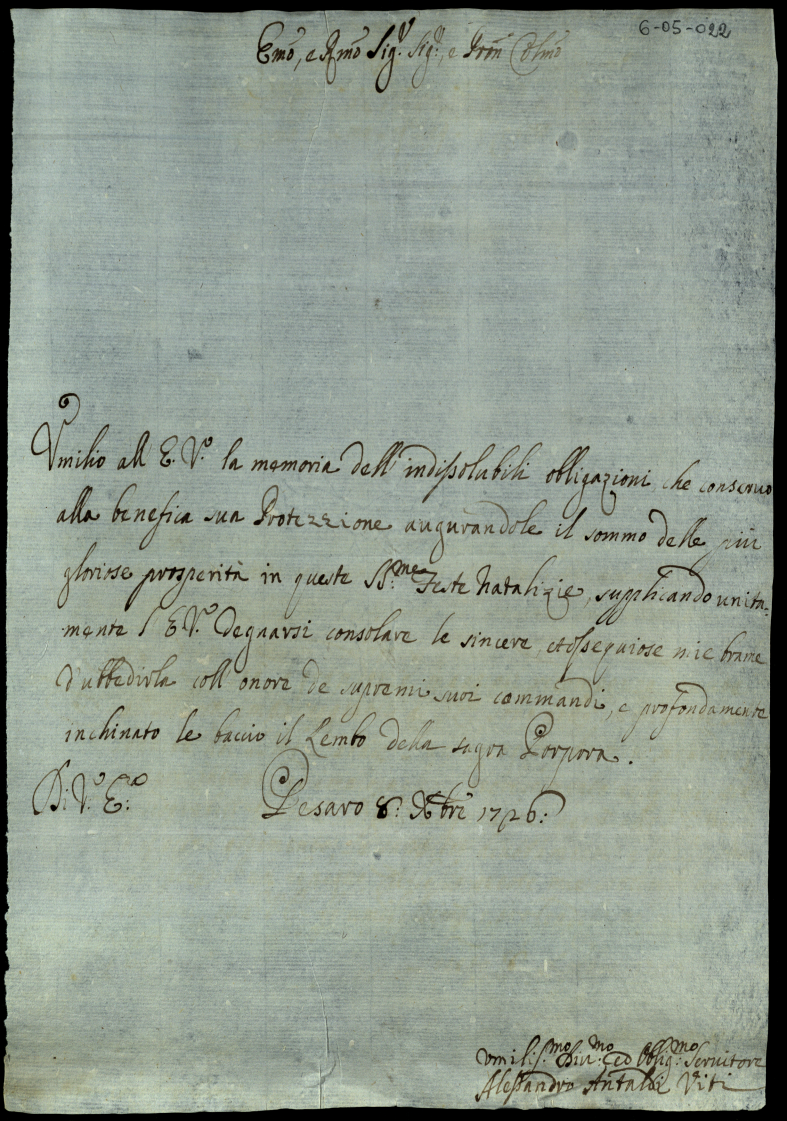 6-05-022
Emo, e Rmo Sig.r Sig.r, e Pron Colmo
Vmilio all E. V.a la memoria dell' indissolubili obligazioni, che conseruo
alla benefica sua Protezzione augurandole il sommo delle più
gloriose prosperità in queste SS.me Feste Natalizie, supplicando unita-
mente l' E V.a degnarsi consolare le sincere, et ossequiose mie brame
d'ubbedirla coll onore de supremi suoi commandi, e profondamente
inchinato le baccio il Lembo della sagra Porpora.
Di V.a E.za
Pesaro 8. Xbre 1726:
Vmilis.mo Diu.mo ed Oblig.mo Seruitore
Alessandro Antaldi Viti